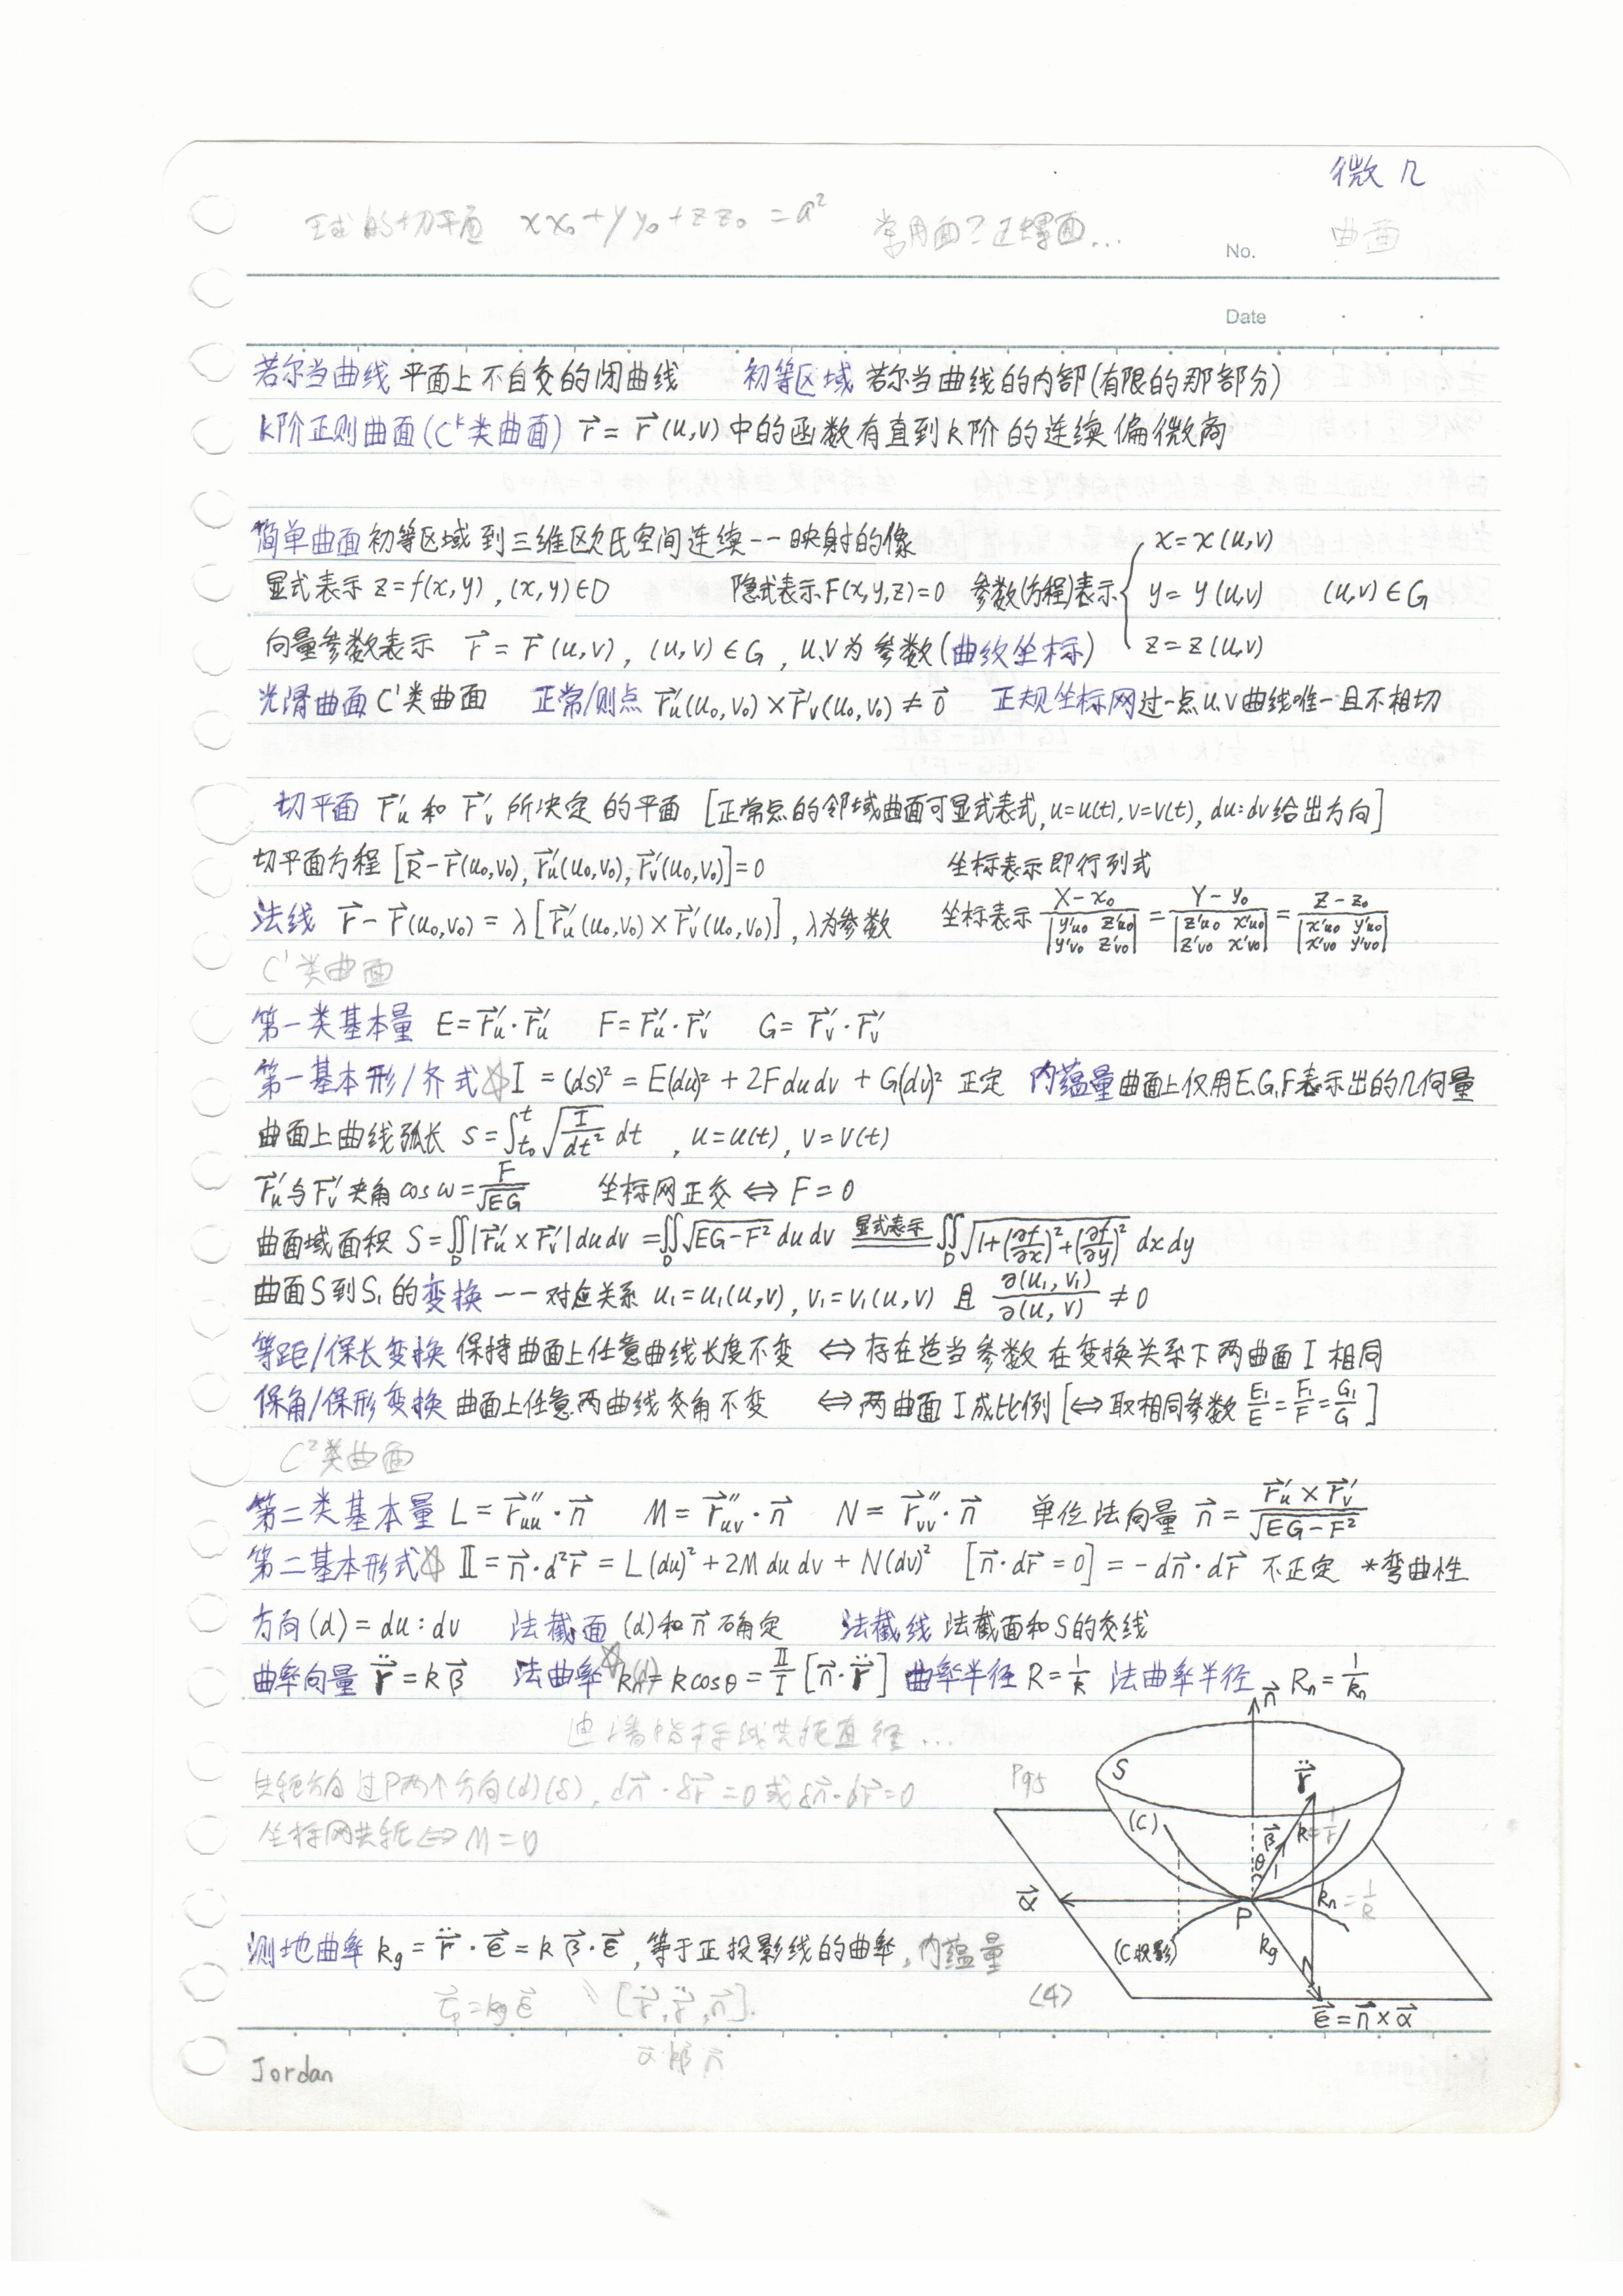 微几
球的切平面 xx₀+yy₀+zz₀=a² 常用面?正螺面…
No. 曲面
Date
若尔当曲线 平面上不自交的闭曲线 初等区域 若尔当曲线的内部(有限的那部分)
k阶正则曲面(Cᵏ类曲面) r⃗=r⃗(u,v)中的函数有直到k阶的连续偏微商
简单曲面 初等区域到三维欧氏空间连续一一映射的像 x=x(u,v)
显式表示 z=f(x,y), (x,y)∈D 隐式表示F(x,y,z)=0 参数(方程)表示{ y=y(u,v) (u,v)∈G
向量参数表示 r⃗=r⃗(u,v), (u,v)∈G, u、v为参数(曲纹坐标) z=z(u,v)
光滑曲面 C¹类曲面 正常/则点 r⃗'ᵤ(u₀,v₀)×r⃗'ᵥ(u₀,v₀)≠0⃗ 正规坐标网 过一点u、v曲线唯一且不相切
切平面 r⃗'ᵤ和r⃗'ᵥ所决定的平面 [正常点的邻域曲面可显式表式, u=u(t), v=v(t), du:dv给出方向]
切平面方程 [R⃗-r⃗(u₀,v₀), r⃗'ᵤ(u₀,v₀), r⃗'ᵥ(u₀,v₀)]=0 坐标表示即行列式
法线 r⃗-r⃗(u₀,v₀)=λ[r⃗'ᵤ(u₀,v₀)×r⃗'ᵥ(u₀,v₀)], λ为参数 坐标表示 (X-x₀)/|y'u₀ z'u₀; y'v₀ z'v₀| = (Y-y₀)/|z'u₀ x'u₀; z'v₀ x'v₀| = (Z-z₀)/|x'u₀ y'u₀; x'v₀ y'v₀|
C¹类曲面
第一类基本量 E=r⃗'ᵤ·r⃗'ᵤ F=r⃗'ᵤ·r⃗'ᵥ G=r⃗'ᵥ·r⃗'ᵥ
第一基本形/齐式☆ I=(ds)²=E(du)²+2Fdudv+G(dv)² 正定 内蕴量 曲面上仅用E、G、F表示出的几何量
曲面上曲线弧长 s=∫ₜ₀ᵗ √(I/dt²) dt, u=u(t), v=v(t)
r⃗'ᵤ与r⃗'ᵥ夹角 cosω=F/√EG 坐标网正交⇔F=0
曲面域面积 S=∬_D |r⃗'ᵤ×r⃗'ᵥ|dudv=∬_D √(EG-F²) dudv 显式表示 ∬_D √(1+(∂f/∂x)²+(∂f/∂y)²) dxdy
曲面S到S₁的变换 一一对应关系 u₁=u₁(u,v), v₁=v₁(u,v) 且 ∂(u₁,v₁)/∂(u,v)≠0
等距/保长变换 保持曲面上任意曲线长度不变 ⇔存在适当参数在变换关系下两曲面I相同
保角/保形变换 曲面上任意两曲线交角不变 ⇔两曲面I成比例[⇔取相同参数 E₁/E=F₁/F=G₁/G]
C²类曲面
第二类基本量 L=r⃗''ᵤᵤ·n⃗ M=r⃗''ᵤᵥ·n⃗ N=r⃗''ᵥᵥ·n⃗ 单位法向量 n⃗=(r⃗'ᵤ×r⃗'ᵥ)/√(EG-F²)
第二基本形式☆ II=n⃗·d²r⃗=L(du)²+2Mdudv+N(dv)² [n⃗·dr⃗=0]=-dn⃗·dr⃗ 不正定 *弯曲性
方向(d)=du:dv 法截面 (d)和n⃗确定 法截线 法截面和S的交线
曲率向量 r̈⃗=kβ⃗ 法曲率☆ kₙ(d)=kcosθ=II/I [n⃗·r̈⃗] 曲率半径 R=1/k 法曲率半径 Rₙ=1/kₙ
迪潘指标线共轭直径…
共轭方向 过P两个方向(d)(δ), dn⃗·δr⃗=0或δn⃗·dr⃗=0 P95
坐标网共轭⇔M=0
n⃗
S
r̈⃗
(C)
β⃗
θ 1
k=1/r
α⃗
P
kₙ=1/R
(C投影)
k_g
N
e⃗=n⃗×α⃗
(4)
测地曲率 k_g=r̈⃗·e⃗=kβ⃗·e⃗, 等于正投影线的曲率, 内蕴量
=k_g e⃗ [ṙ⃗, r̈⃗, n⃗].
α⃗ kβ⃗ n⃗
Jordan